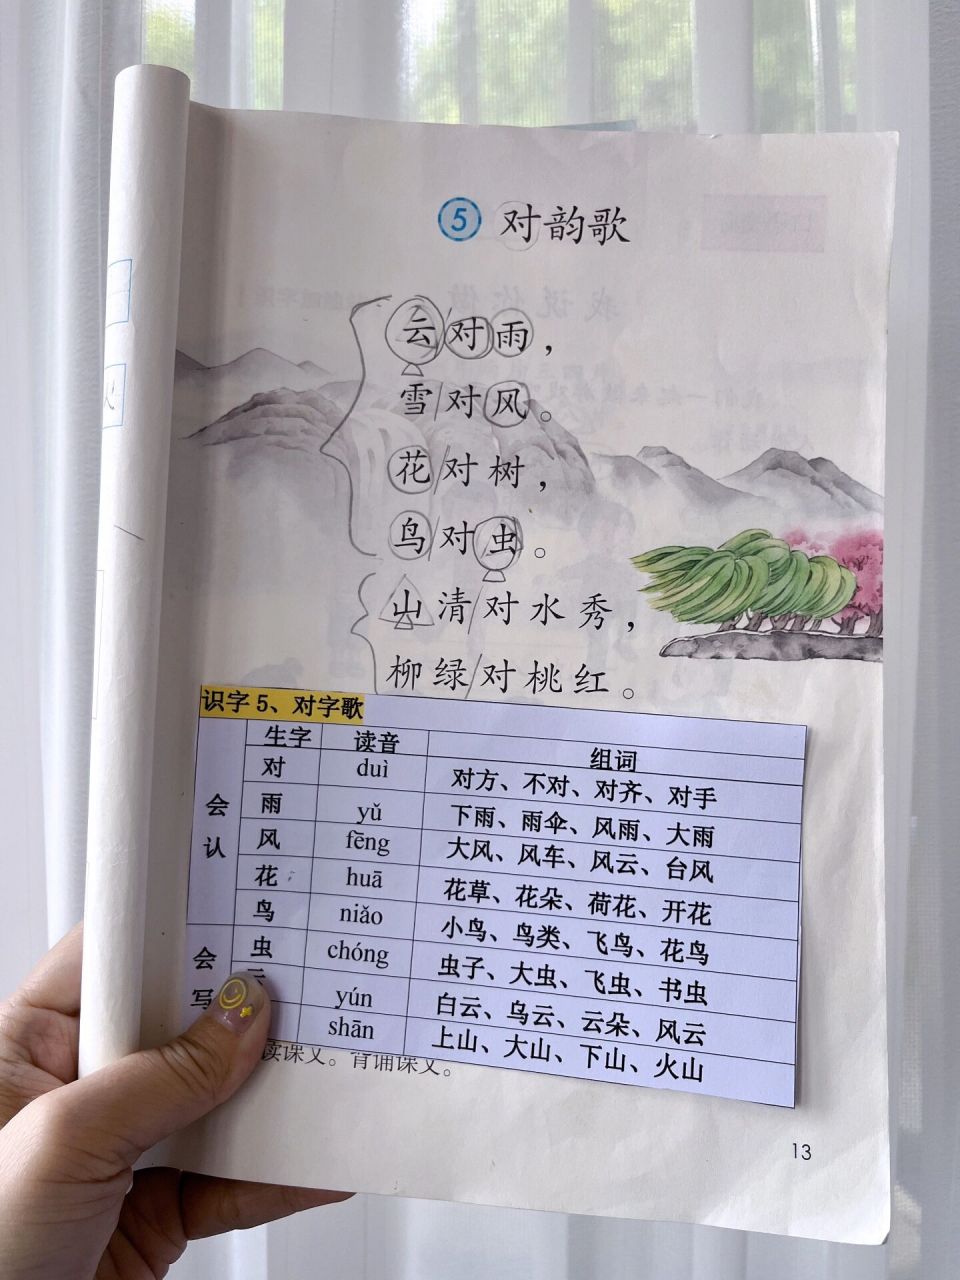 5 对韵歌
云对雨，
雪对风。
花对树，
鸟对虫。
山清对水秀，
柳绿对桃红。
识字 5、对字歌
生字 读音 组词
会认
对 duì 对方、不对、对齐、对手
雨 yǔ 下雨、雨伞、风雨、大雨
风 fēng 大风、风车、风云、台风
花 huā 花草、花朵、荷花、开花
鸟 niǎo 小鸟、鸟类、飞鸟、花鸟
会写
虫 chóng 虫子、大虫、飞虫、书虫
yún 白云、乌云、云朵、风云
shān 上山、大山、下山、火山
读课文。背诵课文。
13